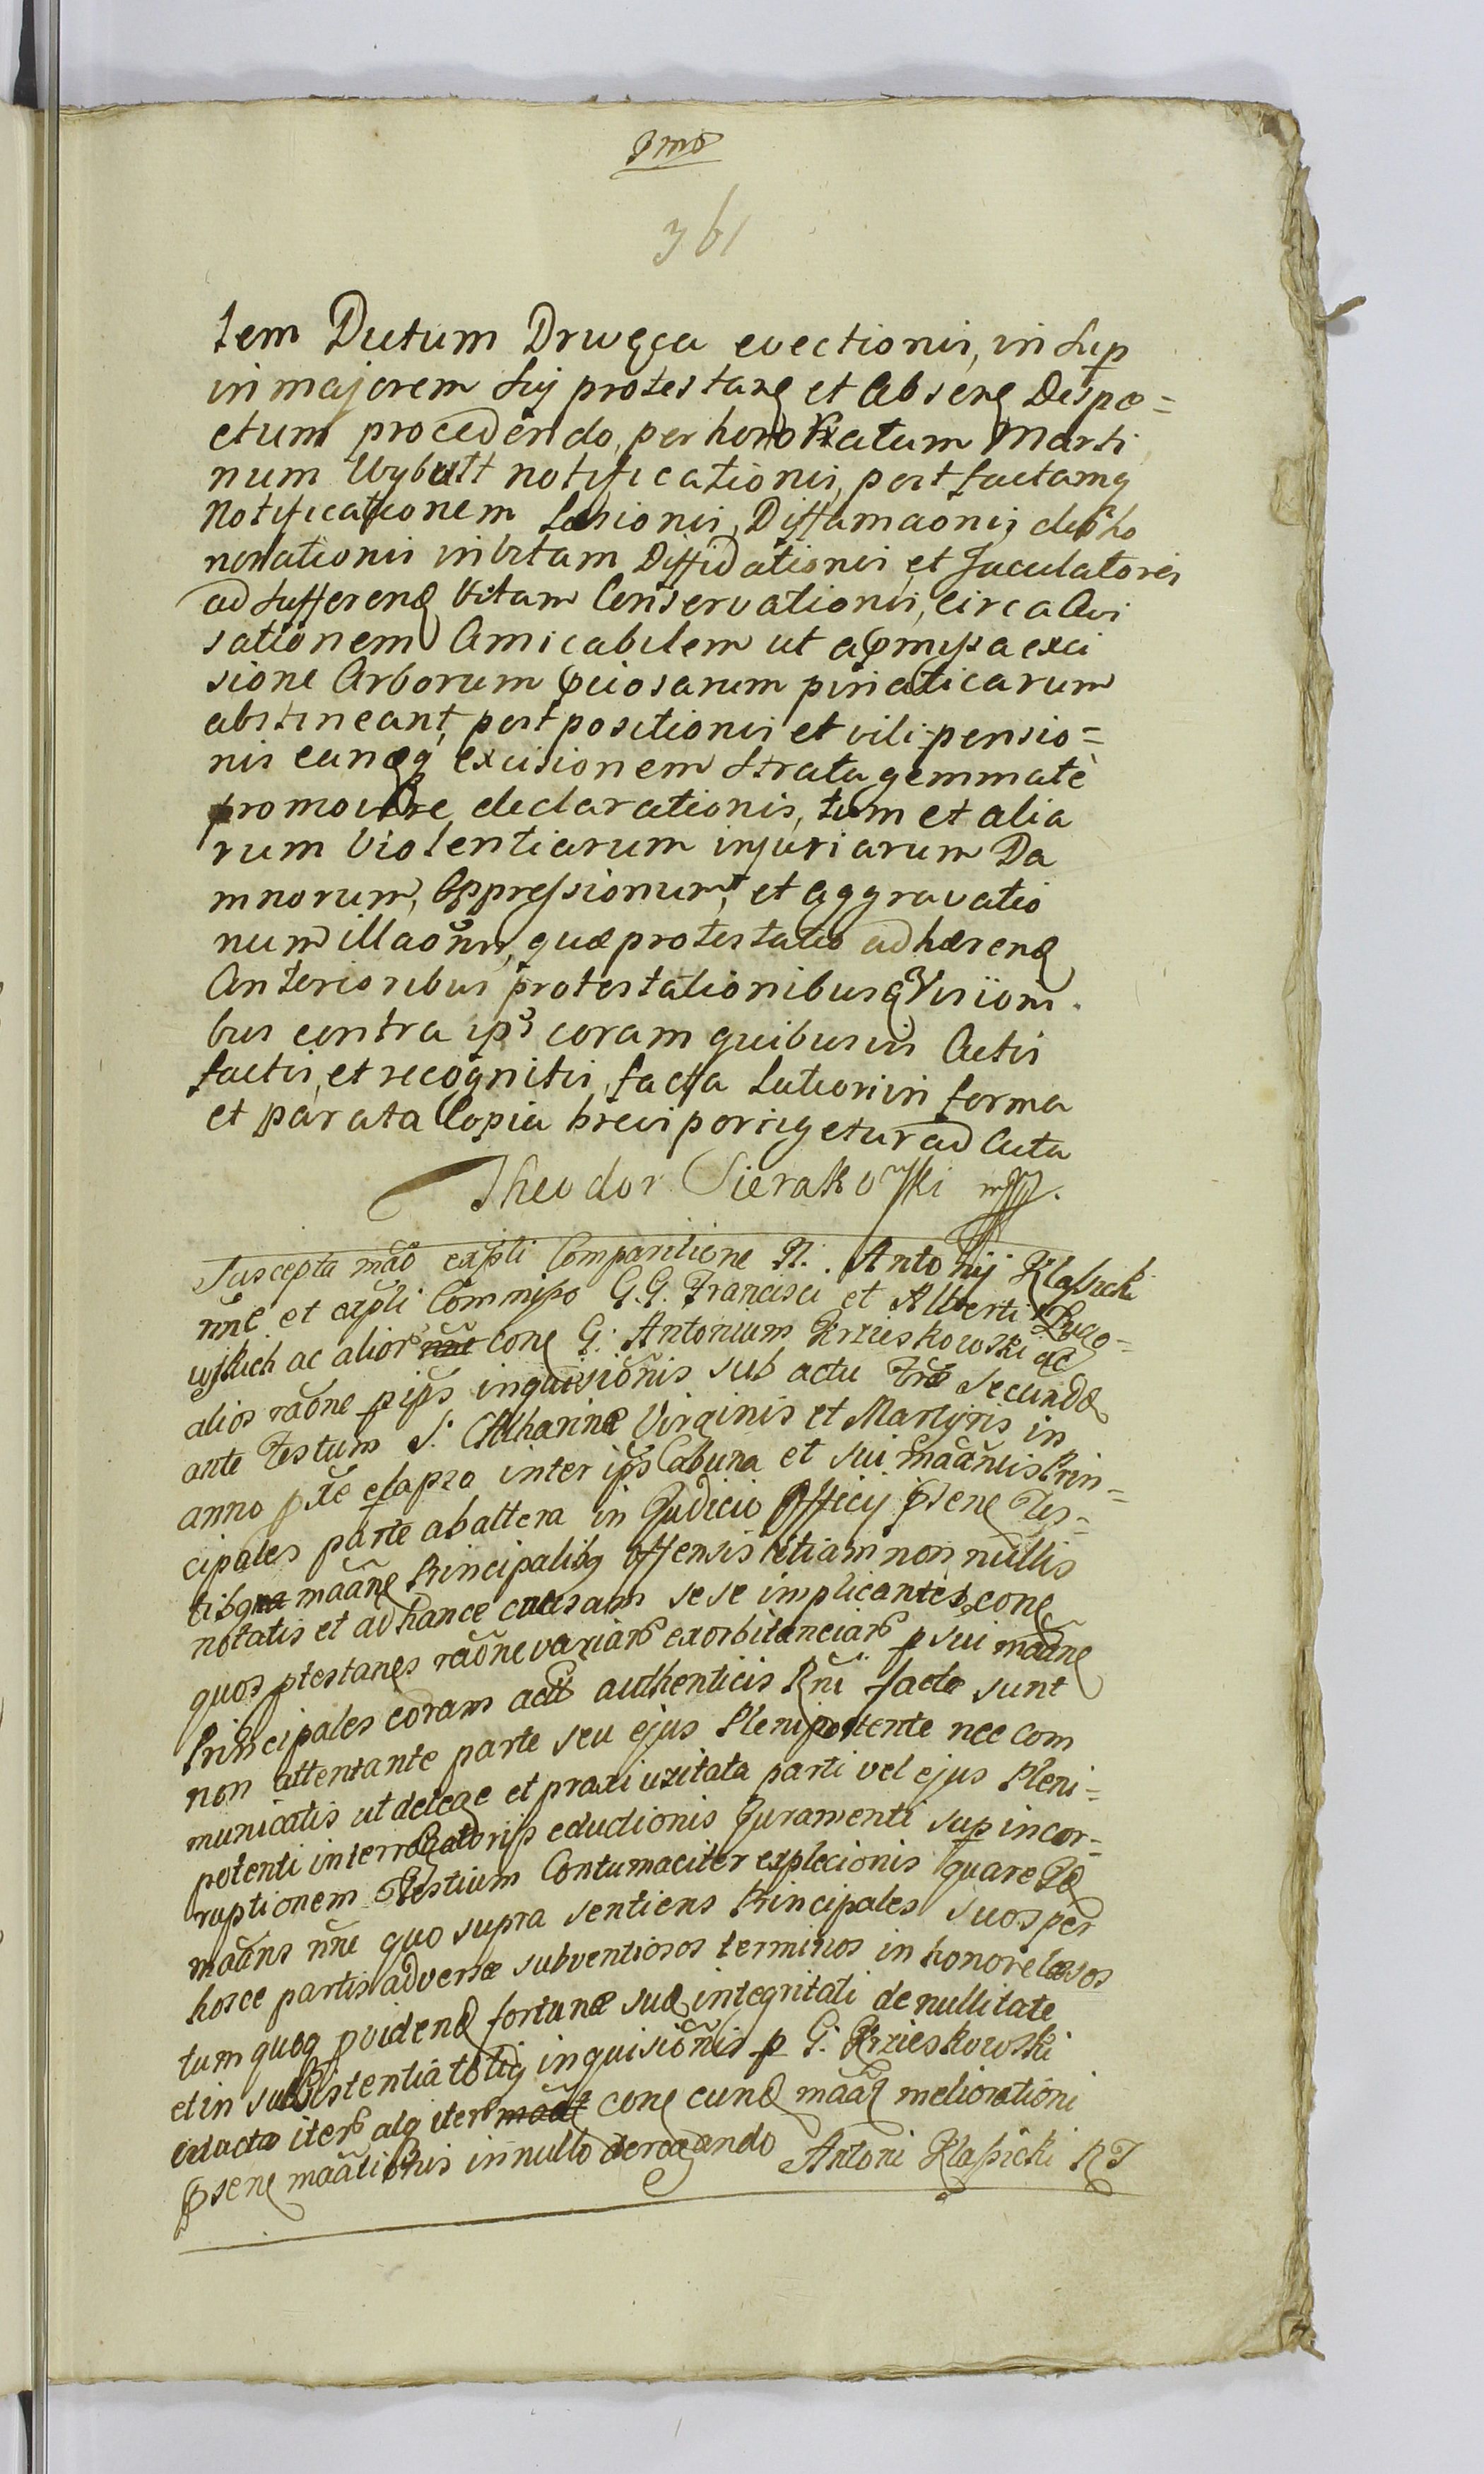 361
tem Dictum Drwęca evectionis, insup
in majorem Sui protestanꝫ et Absenꝫ Despe=
ctum procedendo, per honoratum Marti
num Wybult notificationis, post factamq
Notificationem Læsionis, Diffamaonis, deho
norationis in vitam Diffidationis et Jaculatores
ad Sufferenꝫ Vitam Conservationis, circa Avi
sationem Amicabilem ut a pmissa exci
sione Arborum pinaticarum
abstineant, postpositionis et vilipensio=
nis eanꝫq excisionem Stratagemmatè
promovere declarationis, tum et alia
rum Violentiarum injuriarum Da
mnorum, Oppressionum, et Aggravatio
num illaõnis, quæ protestatio adhærenꝫ
Anterioribus protestationibus Visioni
bus contra ips coram quibusvis Actis
factis, et recognitis, facta Latiori in forma
et parata Copia brevi porrigetur ad Acta
Theodor Sierakowski mpp.
Suscepta mão expli Comparitione N. Antonij Klasicki
nñe et expli Commisso G.G. Francisci et Alberti
wskich ac alior conꝫ G. Antonium Krzieskowski ac
alios raõne p ips inquisiõnis sub actu Fræ Secundæ
ante Festum S. Catharinæ Virginis et Martyris in
anno pxe elapso inter ips et sui maãntis Prin=
cipales parte ab altera in Judicio Officij pĩsenꝫ Tes=
tibq maãnꝫ Principalibq offensis etiam non nullis
notatis et ad hance causam sese implicantes conꝫ
quos ptestanꝫs raõne variar exorbitanciar p sui maãnꝫ
Principales coram actis authenticis Rñi factæ sunt
non attentante parte seu ejus Plenipotente nec com
municatis ut de lege et praxi usitata parti vel ejus Pleni=
potenti interrogatorijs eductionis Juramenti sup incor=
ruptionem Testium Contumaciter explecionis quare Id
maãns nñe quo supra sentiens Principales suos per
hosce partis adversæ subventiosos terminos in honore læsos
tum quoq pvidenꝫ fortunæ suæ integritati de nullitate
et in subsistentia totiq inquisiõnis p G. Krzieskowski
eductæ iter alq iter conꝫ eunꝫ maãt meliorationi
pĩsenꝫ maãtionis in nullo derogando Antoni Klasicki RJ